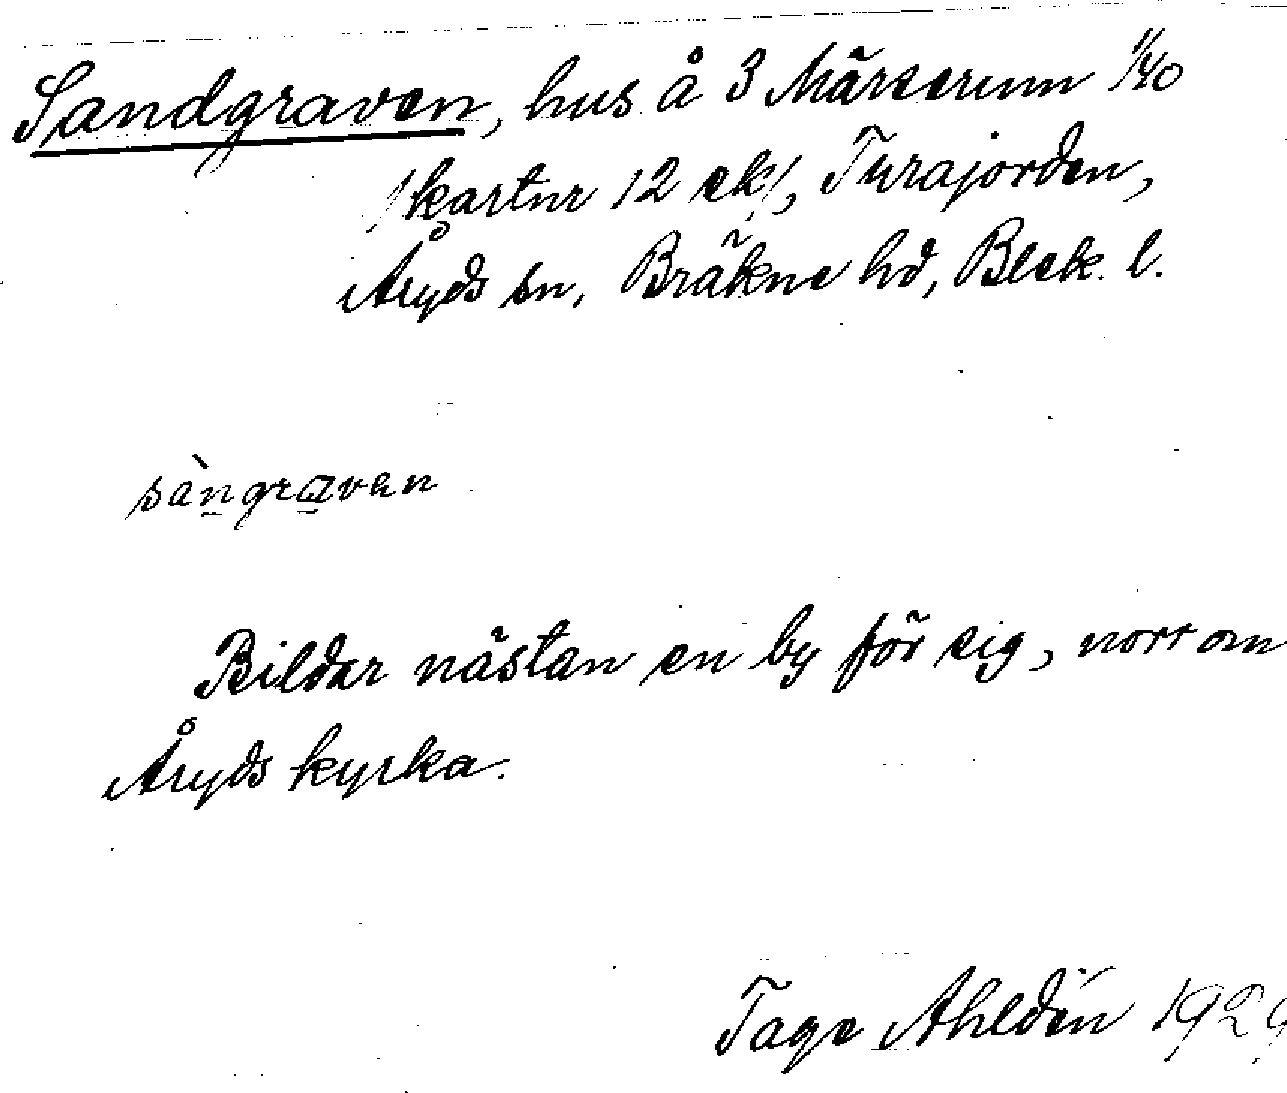 Sandgraven, hus å 3 Märserum 1/40
/kartnr 12 ek/, Turajorden,
Åryds sn, Bräkne hd, Blek. l.
sàngravan
Bildar nästan en by för sig, norr om
Åryds kyrka.
Tage Ahldén 1929